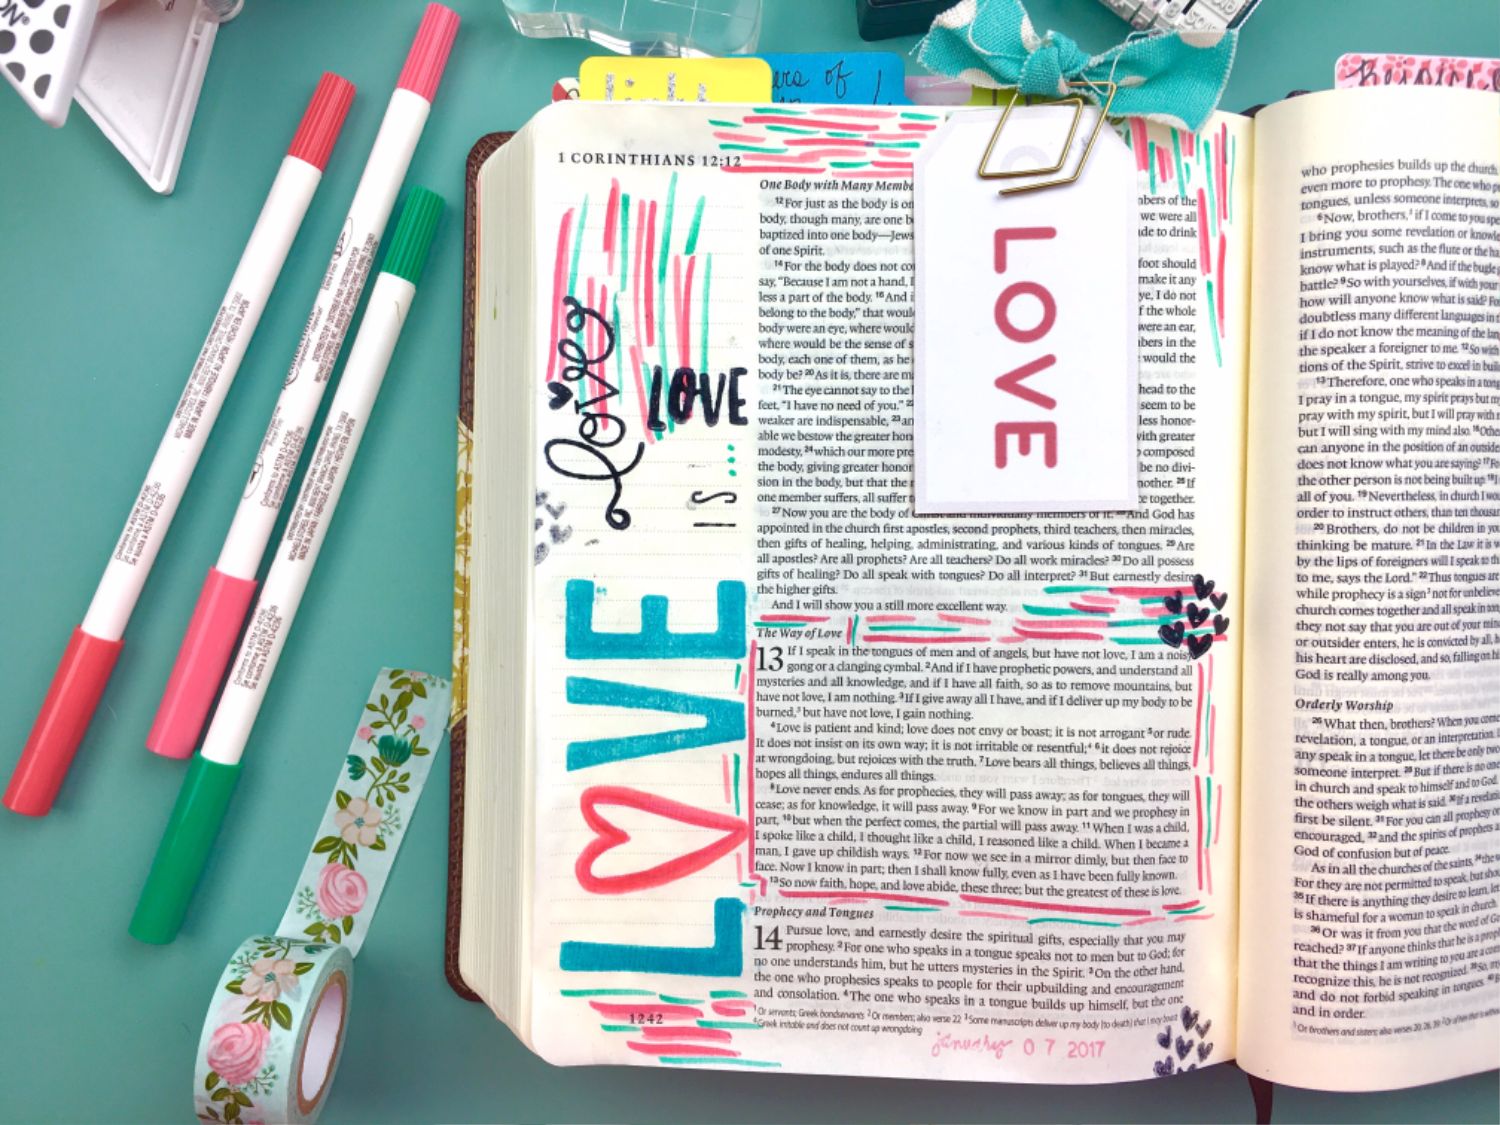 light
ers of
Rejoice
1 CORINTHIANS 12:12
love
LOVE
IS...
LOVE
LOVE
One Body with Many Membe
12For just as the body is on
body, though many, are one b
baptized into one body—Jews
of one Spirit.
14For the body does not co
say, "Because I am not a hand, I
less a part of the body. 16And i
belong to the body," that woul
body were an eye, where would
where would be the sense of s
body, each one of them, as he
body be? 20As it is, there are m
21The eye cannot say to the
feet, "I have no need of you." 22
weaker are indispensable, 23an
able we bestow the greater hon
modesty, 24which our more pre
the body, giving greater honor
sion in the body, but that the
one member suffers, all suffer
nbers of the
we were all
de to drink
foot should
make it any
ye, I do not
f the whole
were an ear,
bers in the
would the
head to the
seem to be
less honor-
with greater
composed
be no divi-
nother. 26If
ce together.
27Now you are the body of Christ and individually members of it. 28And God has
appointed in the church first apostles, second prophets, third teachers, then miracles,
then gifts of healing, helping, administrating, and various kinds of tongues. 29Are
all apostles? Are all prophets? Are all teachers? Do all work miracles? 30Do all possess
gifts of healing? Do all speak with tongues? Do all interpret? 31But earnestly desire
the higher gifts.
And I will show you a still more excellent way.
The Way of Love
13 If I speak in the tongues of men and of angels, but have not love, I am a noisy
gong or a clanging cymbal. 2And if I have prophetic powers, and understand all
mysteries and all knowledge, and if I have all faith, so as to remove mountains, but
have not love, I am nothing. 3If I give away all I have, and if I deliver up my body to be
burned, but have not love, I gain nothing.
4Love is patient and kind; love does not envy or boast; it is not arrogant 5or rude.
It does not insist on its own way; it is not irritable or resentful; 6it does not rejoice
at wrongdoing, but rejoices with the truth. 7Love bears all things, believes all things,
hopes all things, endures all things.
8Love never ends. As for prophecies, they will pass away; as for tongues, they will
cease; as for knowledge, it will pass away. 9For we know in part and we prophesy in
part, 10but when the perfect comes, the partial will pass away. 11When I was a child,
I spoke like a child, I thought like a child, I reasoned like a child. When I became a
man, I gave up childish ways. 12For now we see in a mirror dimly, but then face to
face. Now I know in part; then I shall know fully, even as I have been fully known.
13So now faith, hope, and love abide, these three; but the greatest of these is love.
Prophecy and Tongues
14 Pursue love, and earnestly desire the spiritual gifts, especially that you may
prophesy. 2For one who speaks in a tongue speaks not to men but to God; for
no one understands him, but he utters mysteries in the Spirit. 3On the other hand,
the one who prophesies speaks to people for their upbuilding and encouragement
and consolation. 4The one who speaks in a tongue builds up himself, but the one
1Or servants; Greek bondservants 2Or members; also verse 22 3Some manuscripts deliver up my body [to death] that I may boast
4Greek irritable and does not count up wrongdoing
1242
january 07 2017
who prophesies builds up the church.
even more to prophesy. The one who
tongues, unless someone interprets, so
6Now, brothers, if I come to you
I bring you some revelation or knowle
instruments, such as the flute or the ha
know what is played? 8And if the bugle
battle? 9So with yourselves, if with your
how will anyone know what is said? For
doubtless many different languages in
if I do not know the meaning of the lan
the speaker a foreigner to me. 12So with
tions of the Spirit, strive to excel in buil
13Therefore, one who speaks in a tong
I pray in a tongue, my spirit prays but my
pray with my spirit, but I will pray with
but I will sing with my mind also. 16Othe
can anyone in the position of an outside
does not know what you are saying? 17Fo
the other person is not being built up. 18I
all of you. 19Nevertheless, in church I wou
order to instruct others, than ten thousan
20Brothers, do not be children in yo
thinking be mature. 21In the Law it is w
by the lips of foreigners will I speak to th
to me, says the Lord." 22Thus tongues are
while prophecy is a sign not for unbelieve
church comes together and all speak in ton
they not say that you are out of your min
or outsider enters, he is convicted by all, h
his heart are disclosed, and so, falling on hi
God is really among you.
Orderly Worship
26What then, brothers? When you come
revelation, a tongue, or an interpretation.
any speak in a tongue, let there be only two
someone interpret. 28But if there is no one
in church and speak to himself and to God.
the others weigh what is said. 30If a revelati
first be silent. 31For you can all prophesy o
encouraged, 32and the spirits of prophets a
God of confusion but of peace.
As in all the churches of the saints, 34the w
For they are not permitted to speak, but shou
35If there is anything they desire to learn, let
is shameful for a woman to speak in church.
36Or was it from you that the word of God
reached? 37If anyone thinks that he is a prop
that the things I am writing to you are a com
recognize this, he is not recognized. 39So, my
and do not forbid speaking in tongues.
and in order.